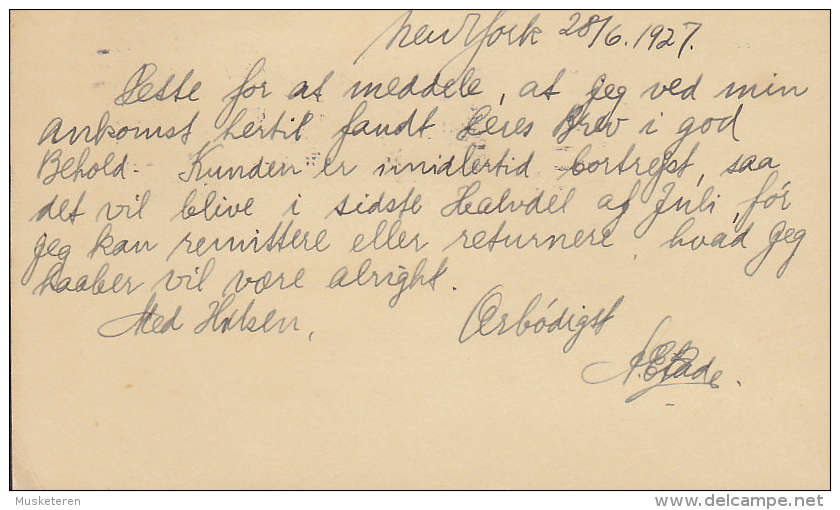 New York 28/6. 1927.
Dette for at meddele, at jeg ved min
Ankomst hertil fandt Deres Brev i god
Behold. Kunden er imidlertid bortrejst, saa
det vil blive i sidste Halvdel af Juli, før
jeg kan remittere eller returnere, hvad jeg
haaber vil være alright.
Med Hilsen,
Ærbødigst
Musketeren
delcampe.net